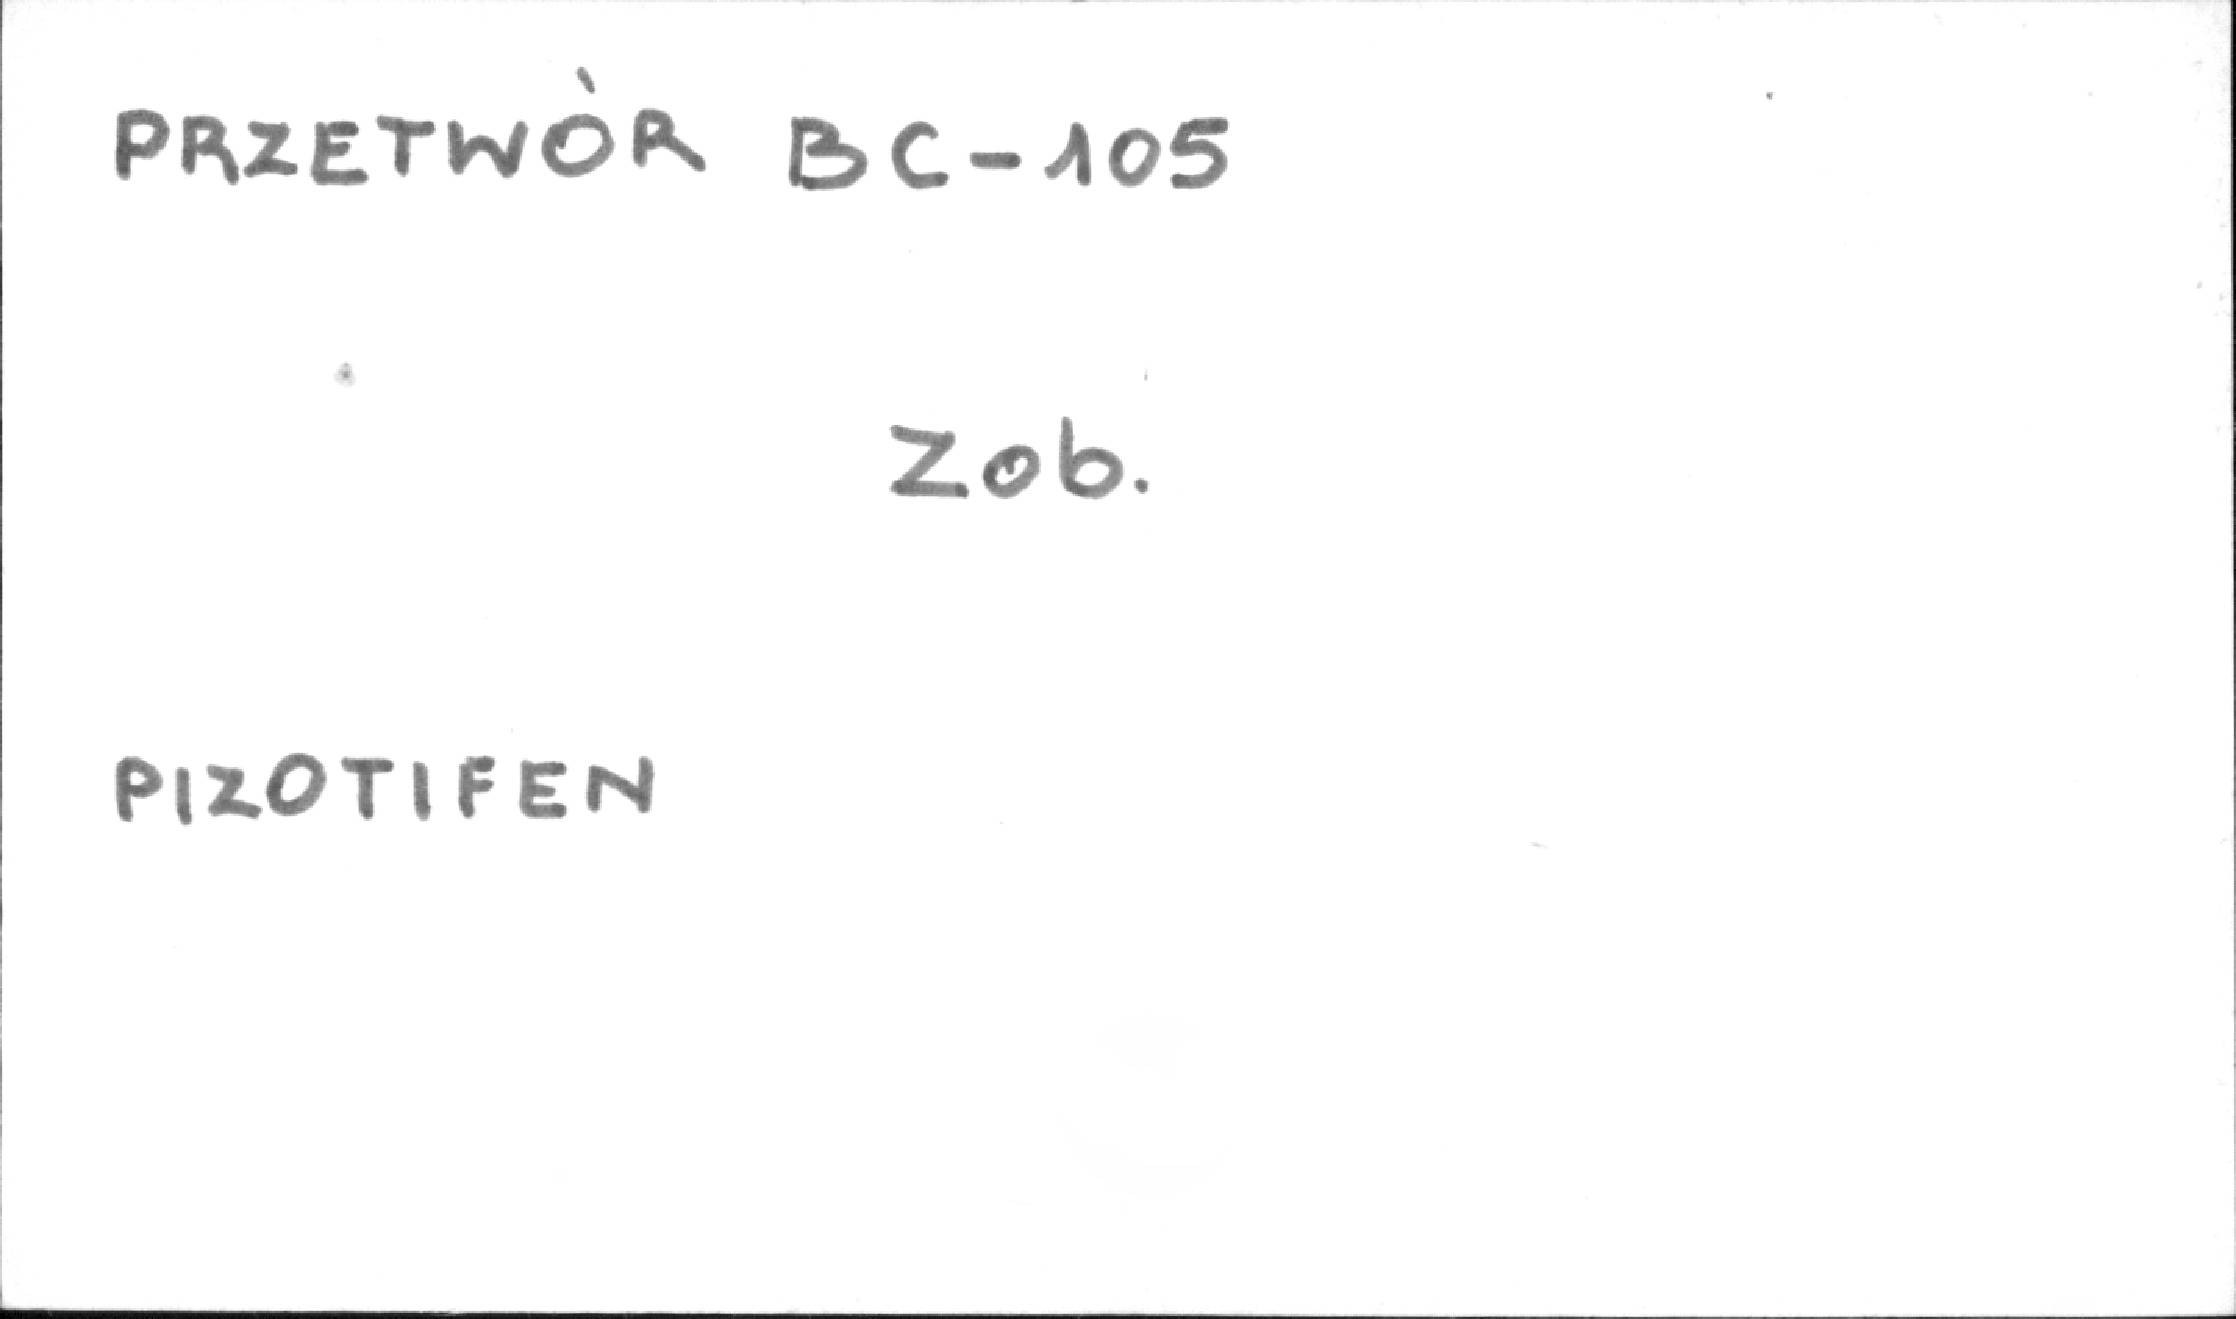 PRZETWÒR BC-105
Zob.
PIZOTIFEN